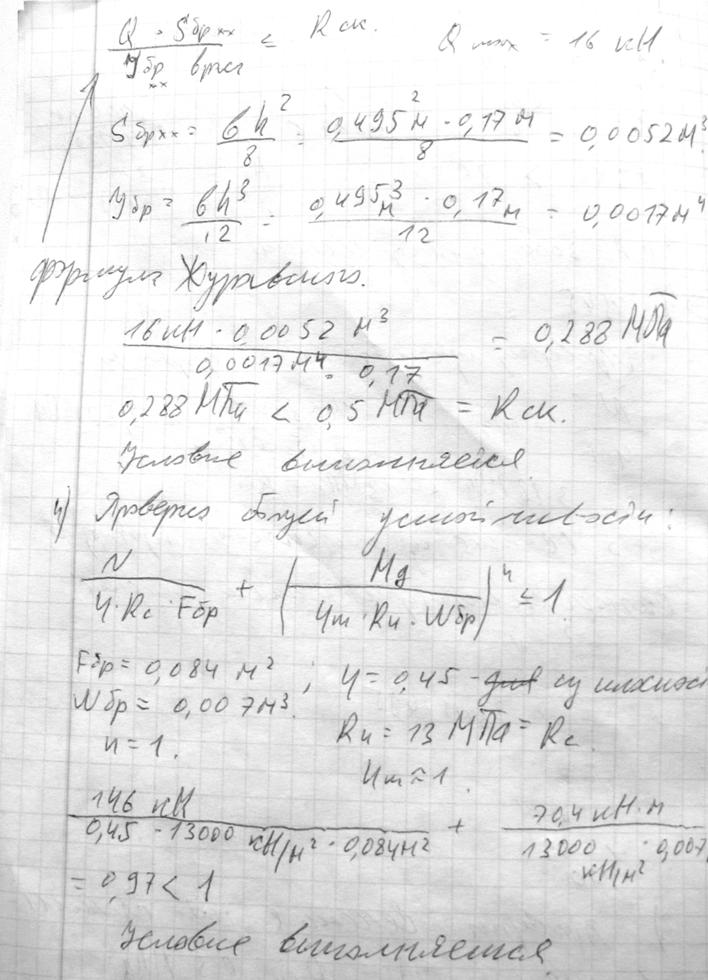 Q · Sбрxx / Yбрxx bрасч ≤ Rск. Qmax = 16 кН
Sбрxx = bh²/8 = 0,495²м · 0,17м / 8 = 0,0052м³
Yбр = bh³/12 = 0,495³м · 0,17м / 12 = 0,0017м⁴
формула Журавского.
16кН · 0,0052 м³ / 0,0017м⁴ · 0,17 = 0,288 МПа
0,288 МПа < 0,5 МПа = Rск.
Условие выполняется
4) Проверка общей устойчивости:
N / φ·Rc·Fбр + (Mд / φm·Rи·Wбр)ⁿ ≤ 1
Fбр = 0,084 м² ; φ = 0,45 - из плоскос
Wбр = 0,007м³.
n = 1. Rи = 13 МПа = Rc.
φm ≈ 1.
146 кН / 0,45 · 13000 кН/м² · 0,084м² + 70,4 кН·м / 13000 кН/м² · 0,007
= 0,97 < 1
Условие выполняется